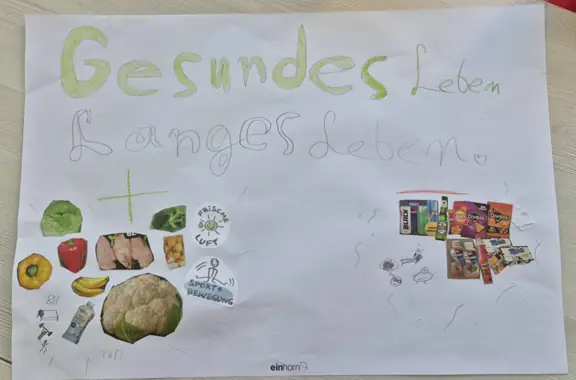 Gesundes Leben
Langes Leben.
+
FRISCHE
LUFT
SPORT+
BEWEGUNG
Doritos
einhorn